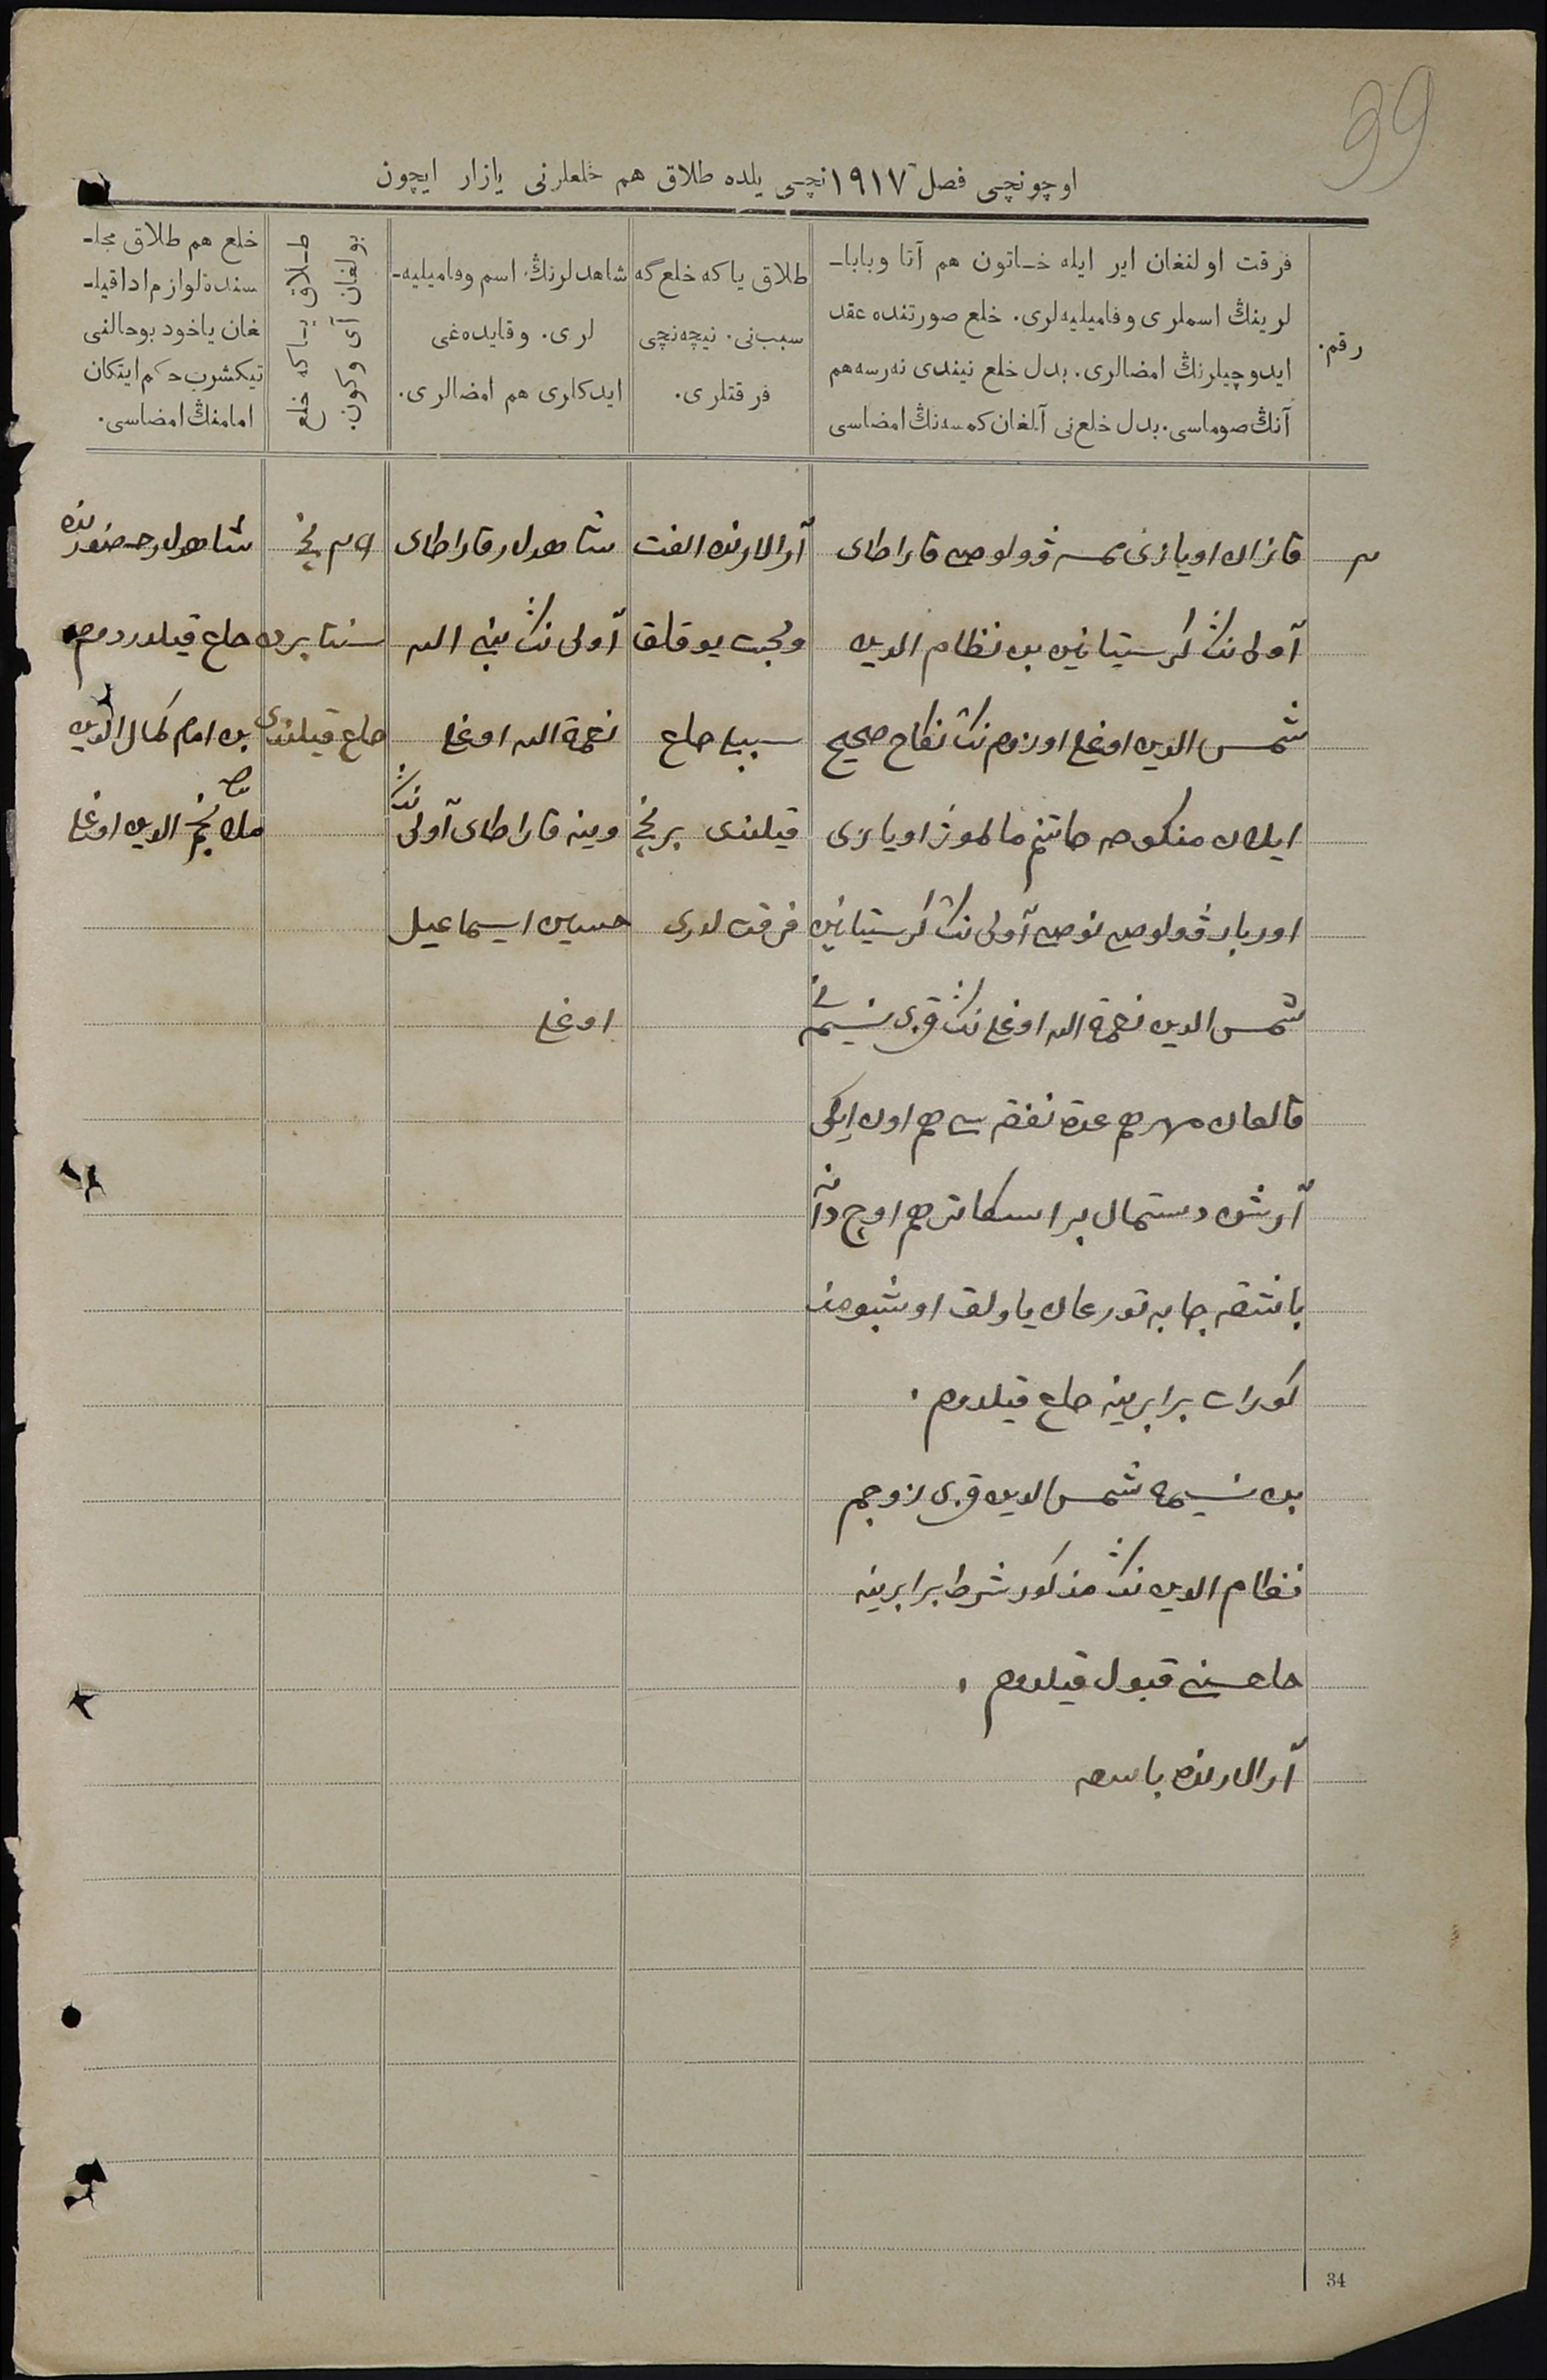 39
اوچونچی فصل ١٩١٧نچی یلده طلاق هم خلعلرنی یازار ایچون
رقم.
فرقت اولنغان ایر ایله خاتون هم آتا وبابا-
لرینڭ اسملری وفامیلیه‌لری. خلع صورتنده عقد
ایدوچیلرنڭ امضالری. بدل خلع نیندی نه‌رسه هم
آنڭ صوماسی. بدل خلع‌نی آلغان کمسه‌نڭ امضاسی
طلاق یا که خلع گه
سبب‌نی. نیچه‌نچی
فرقتلری.
شاهدلرنڭ اسم وفامیلیه-
لری. وقایده‌غی
ایدکلری هم امضالری.
طلاق یا که خلع
بولغان آی وکون.
خلع هم طلاق مجا-
سنده لوازم ادا قیلـ-
غان یاخود بوحالنی
تیکشرب حکم ایتکان
امامنڭ امضاسی.
٣
قازان اویازی ممسه ڤولوصی قاراطای
آولی نڭ کرستیانین بن نظام الدین
شمس الدین اوغلی اوزوم نڭ نکاح صحیح
ایلان منکوحه خاتنم مالموز اویازی
اوربار ڤولوصی نوصی آولی نڭ کرستیانین
شمس الدین نعمة الله اوغلی نڭ قزی نسیمه‌نی
قالغان مهر هم عدة نفقه سی هم اون ایکی
آرشون دستمال بر اسکاتر هم اوچ دانه
باشقه چابه تورغان یاولق اوشبو
برابرینه خلع قیلدوم.
بن نسیمه شمس الدین قزی زوجم
نظام الدین نڭ مذکور شرط برابرینه
خلعسینی قبول قیلدوم.
آرالارنده باسه
آرالارنده الفت
ومحبت یوقلق
سببلی خلع
قیلندی برنچی
فرقت لری
شاهدلر قاراطای
آولی نڭ الله
نعمة الله اوغلی
وینه قاراطای آولی نڭ
حسین اسماعیل
اوغلی
نچی
سنتابرده
خلع قیلندی
شاهدلر حضورنده
خلع قیلدردم
بن امام کمال الدین
ملا نجم الدین اوغلی
34